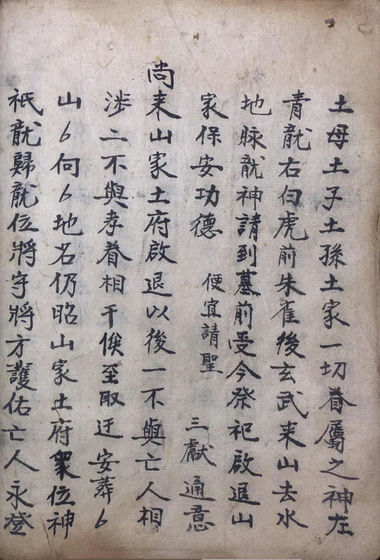 土母土子土孫土家一切眷屬之神左
青龍右白虎前朱雀後玄武来山去水
地脉龍神請到墓前受今祭祀啟退山
家保安功德 便宜請聖 三獻通意
尚来山家土府啟退以後一不與亡人相
涉二不與孝眷相干俟至取迁安葬厶
山厶向厶地名仍昭山家土府衆位神
祇龍歸龍位將守將方護佑亡人永登